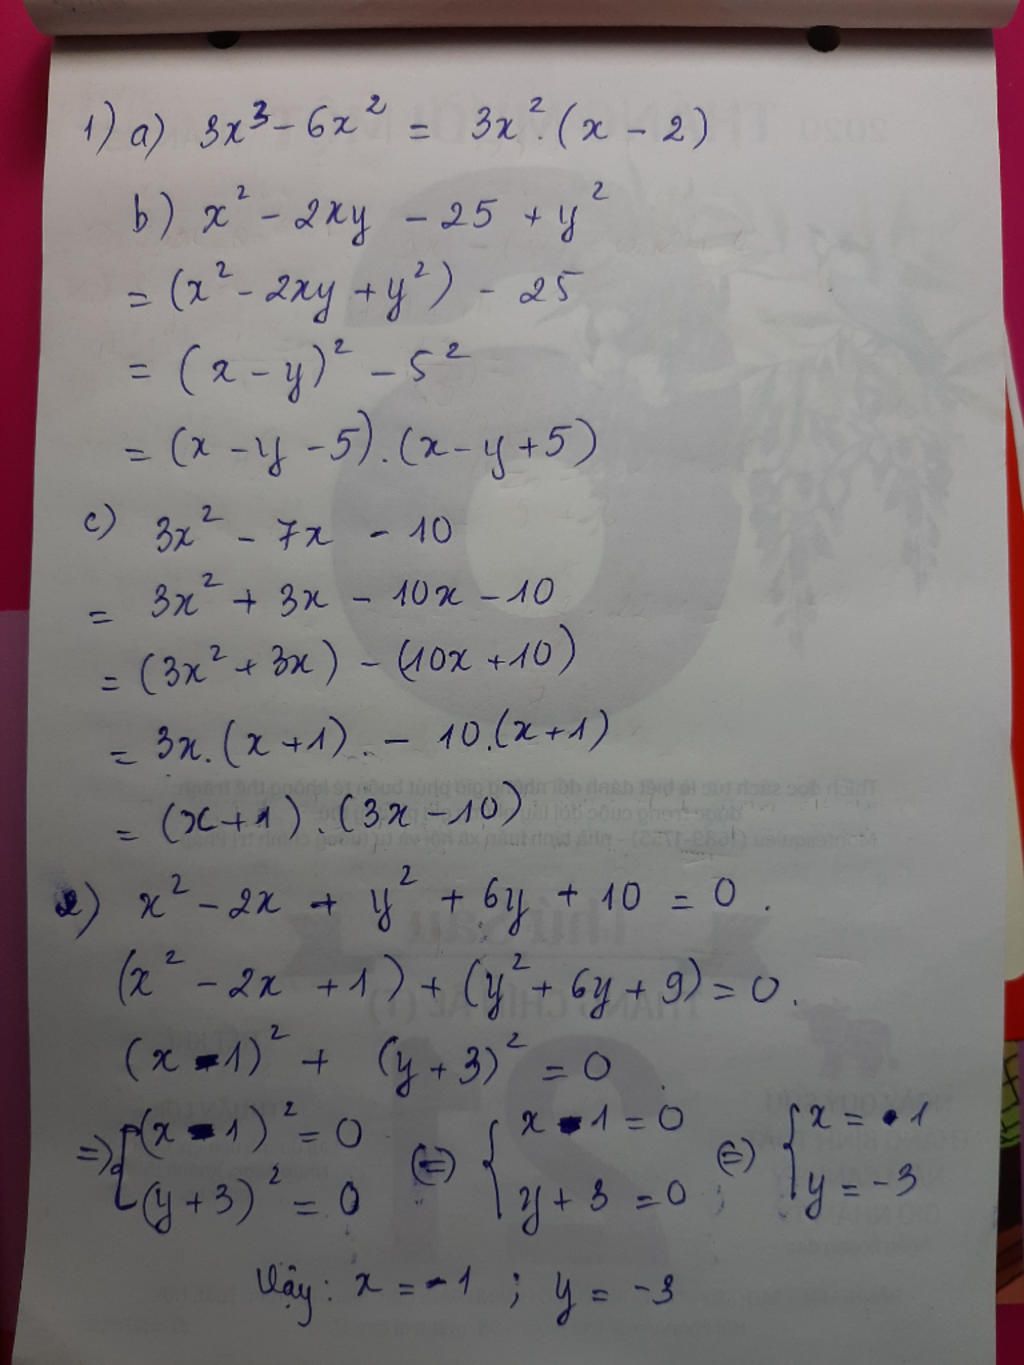 1) a) 3x³ - 6x² = 3x².(x - 2)
b) x² - 2xy - 25 + y²
= (x² - 2xy + y²) - 25
= (x - y)² - 5²
= (x - y - 5).(x - y + 5)
c) 3x² - 7x - 10
= 3x² + 3x - 10x - 10
= (3x² + 3x) - (10x + 10)
= 3x.(x + 1) - 10.(x + 1)
= (x + 1).(3x - 10)
2) x² - 2x + y² + 6y + 10 = 0.
(x² - 2x + 1) + (y² + 6y + 9) = 0.
(x - 1)² + (y + 3)² = 0
=> { (x - 1)² = 0 (=) { x - 1 = 0 (=) { x = 1
(y + 3)² = 0 y + 3 = 0 y = -3
Vậy: x = -1 ; y = -3